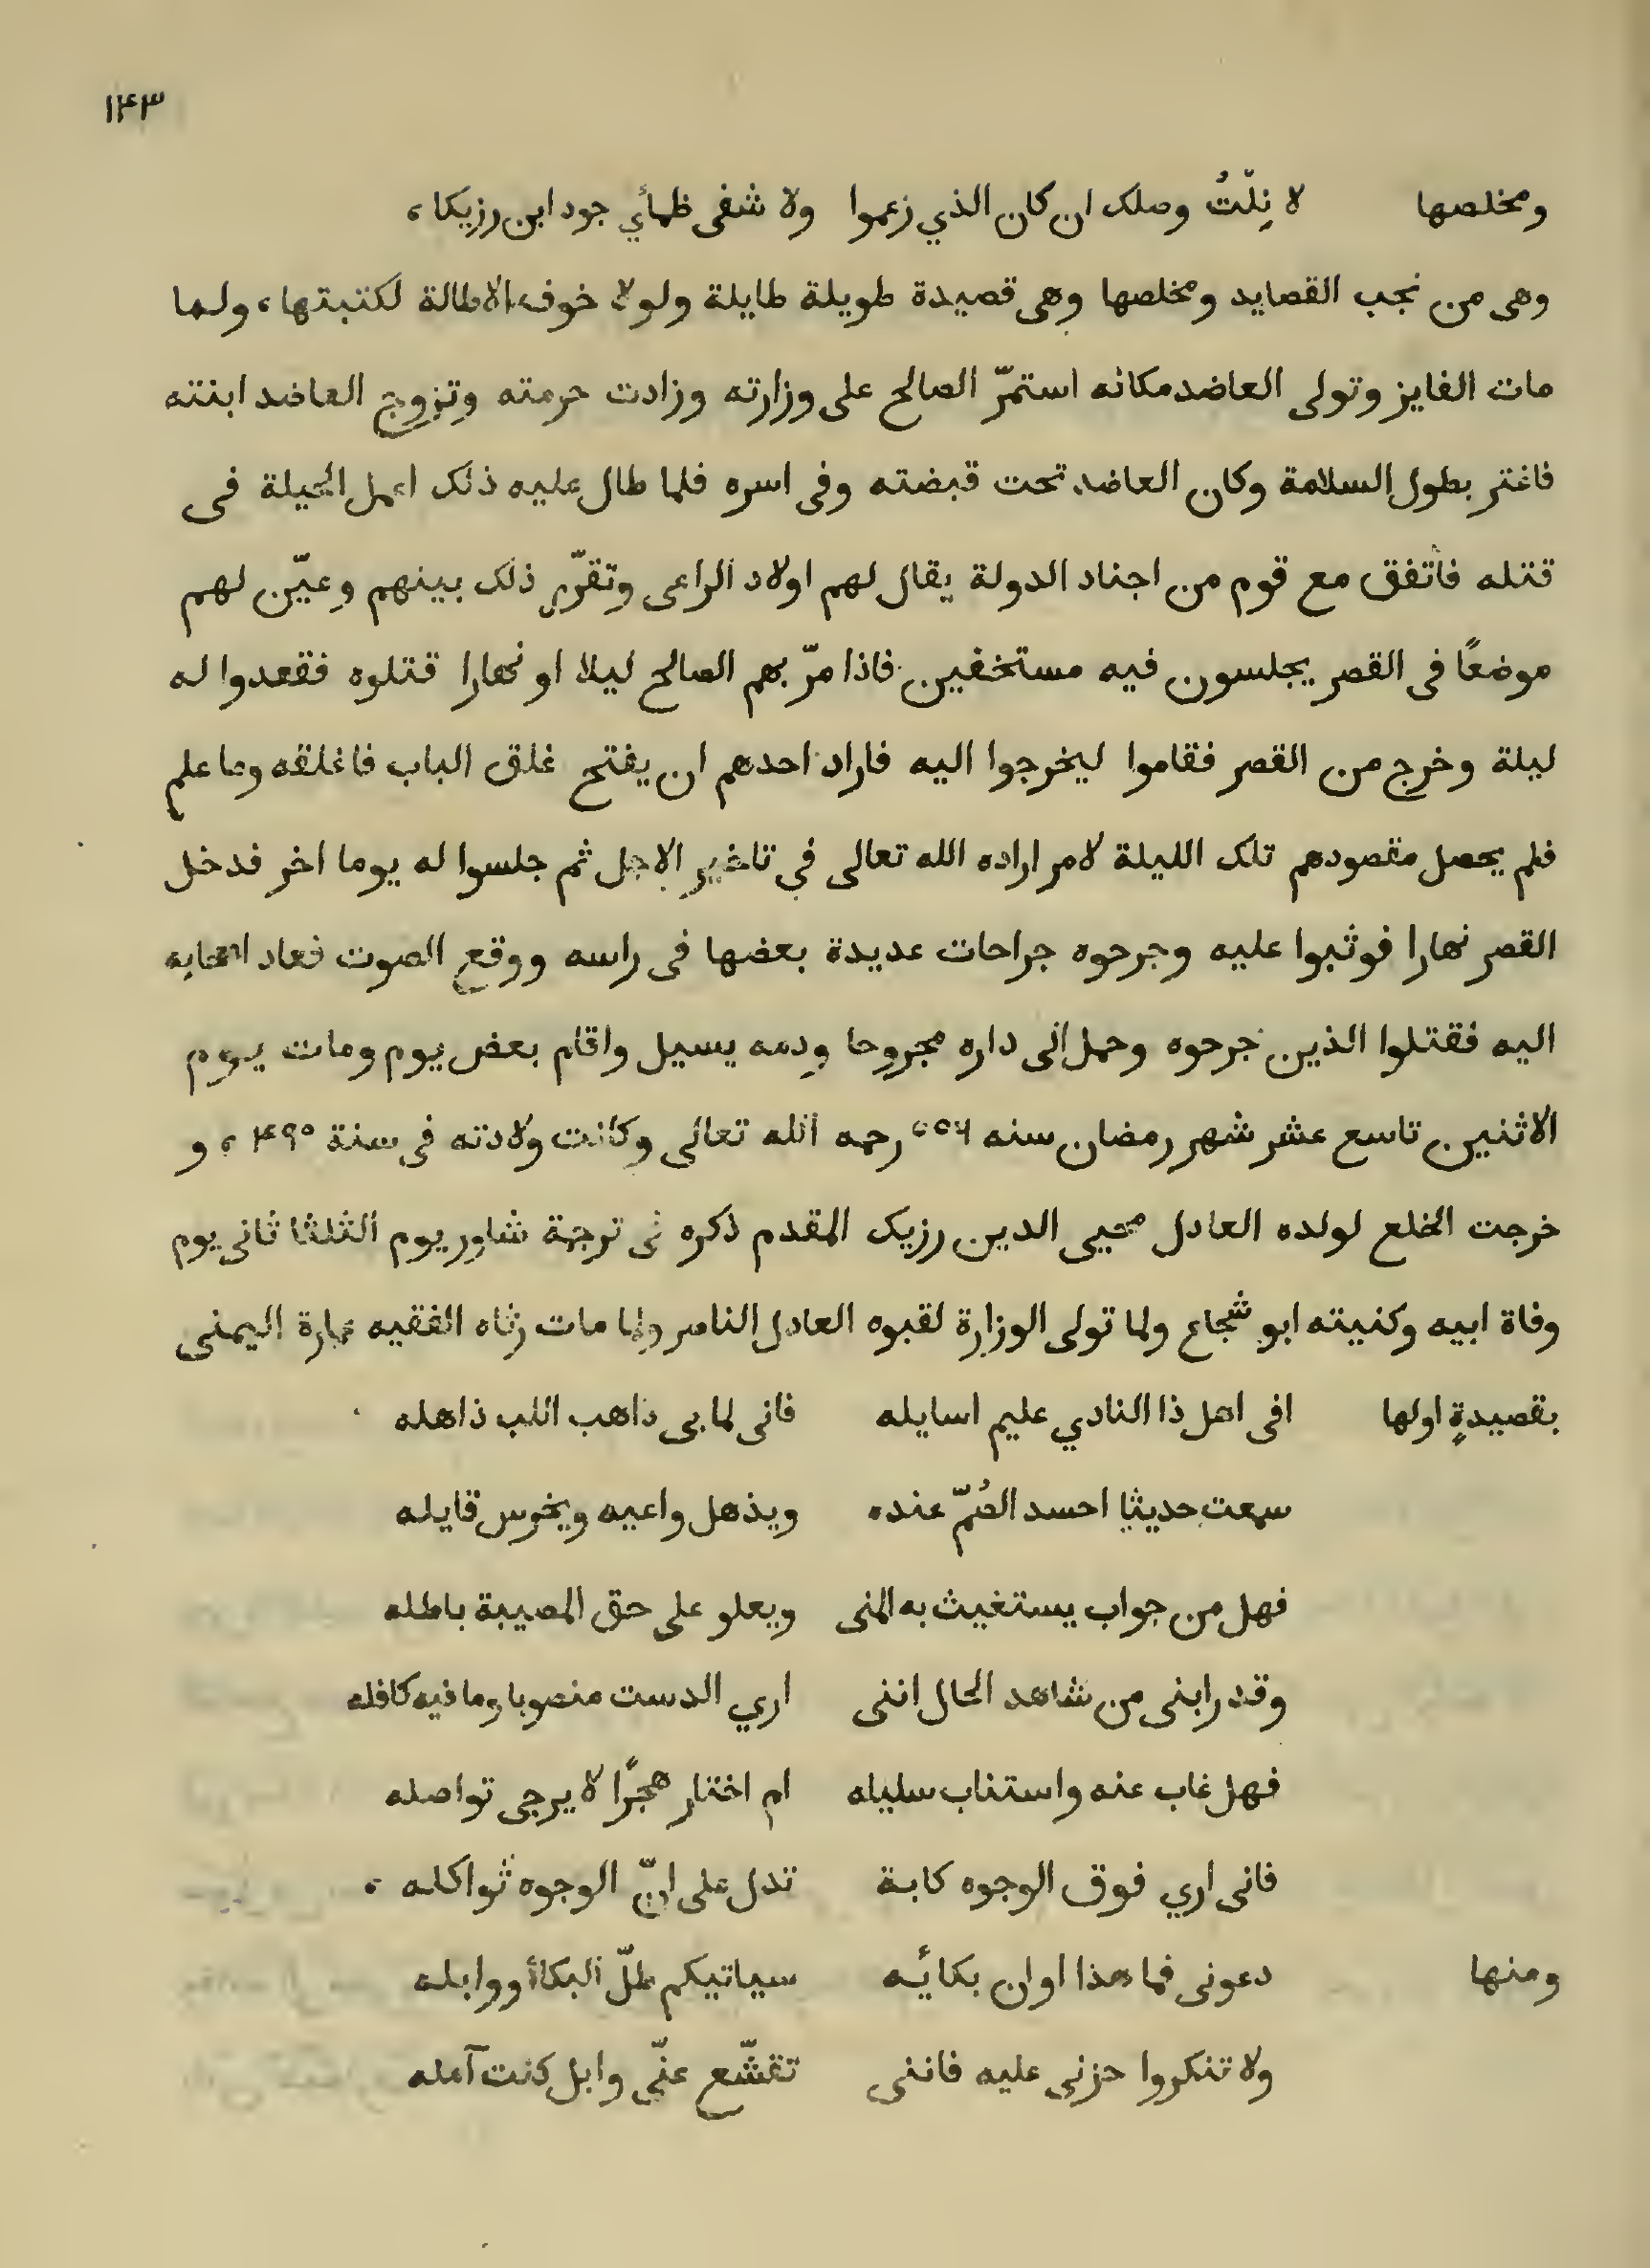 ١٤٣
ومخلصها لا نِلْتُ وصلك ان كان الذي زعموا ولا شفى ظمأي جود ابن رزيكا ،
وهى من نجب القصايد ومخلصها وهى قصيدة طويلة طايلة ولولا خوف الاطالة لكتبتها ، ولما
مات الفايز وتولى العاضد مكانه استمرّ الصالح على وزارته وزادت حرمته وتزوج العاضد ابنته
فاغتر بطول السلامة وكان العاضد تحت قبضته وفى اسره فلما طال عليه ذلك اعمل الحيلة فى
قتله فاتفق مع قوم من اجناد الدولة يقال لهم اولاد الراعى وتقرّر ذلك بينهم وعيّن لهم
موضعًا فى القصر يجلسون فيه مستخفين فاذا مرّ بهم الصالح ليلا او نهارا قتلوه فقعدوا له
ليلة وخرج من القصر فقاموا ليخرجوا اليه فاراد احدهم ان يفتح غلق الباب فاغلقه وما علم
فلم يحصل مقصودهم تلك الليلة لامر اراده الله تعالى في تاخير الاجل ثم جلسوا له يوما اخر فدخل
القصر نهارا فوثبوا عليه وجرحوه جراحات عديدة بعضها فى راسه ووقع الصوت فعاد اصحابه
اليه فقتلوا الذين جرحوه وحمل الى داره مجروحا ودمه يسيل واقام بعض يوم ومات يوم
الاثنين تاسع عشر شهر رمضان سنه ٥٥٦ رحمه الله تعالى وكانت ولادته فى سنة ٤٩٥ ، و
خرجت الخلع لولده العادل محيى الدين رزيك المقدم ذكره فى ترجمة شاور يوم الثلثا ثانى يوم
وفاة ابيه وكنيته ابو شجاع ولما تولى الوزارة لقبوه العادل الناصر ولما مات رثاه الفقيه عمارة اليمنى
بقصيدةٍ اولها افى اهل ذا النادي عليم اسايله فانى لما بى ذاهب اللب ذاهله
سمعت حديثا احسد الصُمّ عنده ويذهل واعيه ويخرس قايله
فهل من جواب يستغيث به المنى ويعلو على حق المصيبة باطله
وقد رابنى من شاهد الحال اننى اري الدست منصوبا وما فيه كافله
فهل غاب عنه واستناب سليله ام اختار هجرًا لا يرجى تواصله
فانى اري فوق الوجوه كابة تدل على انّ الوجوه ثواكله ،
ومنها دعونى فما هذا اوان بكائه سياتيكم طلّ البكاأ ووابله
ولا تنكروا حزنى عليه فاننى تقشّع عنّى وابل كنت آمله